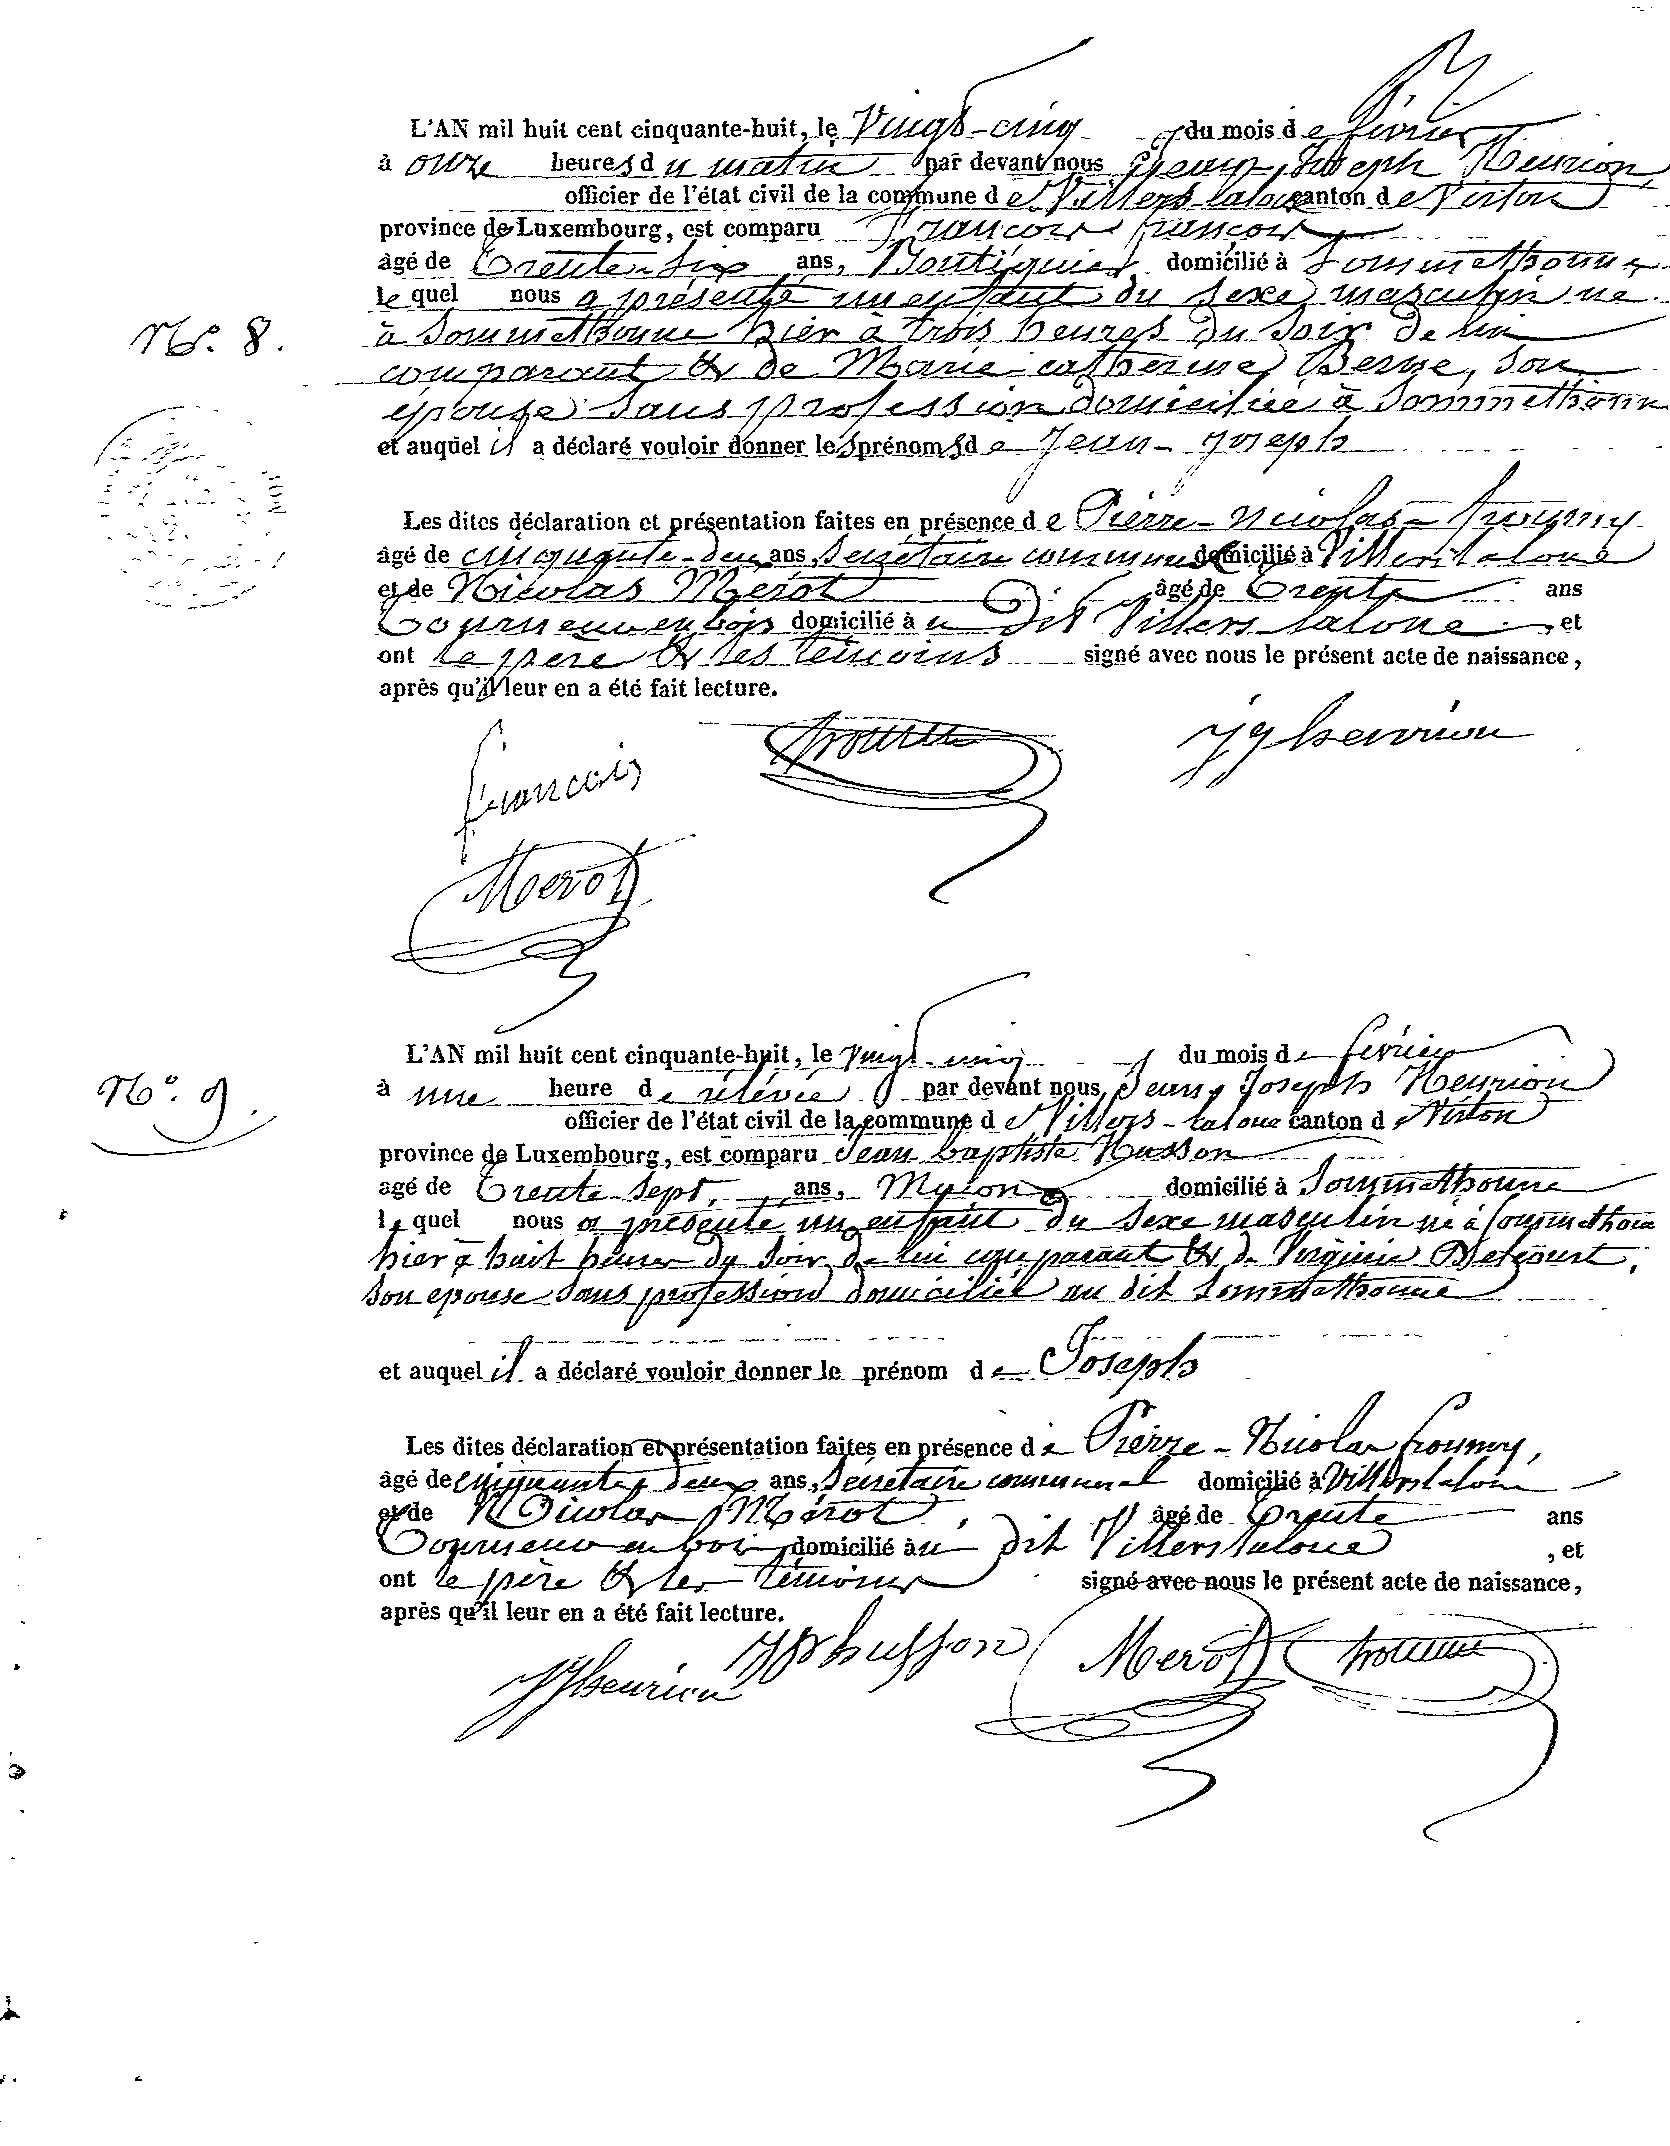 L'AN mil huit cent cinquante-huit, le Vingt-cinq du mois de février
à onze heures du matin par devant nous Jean Joseph Henrion
officier de l'état civil de la commune de Villers-laloue canton de Virton
province de Luxembourg, est comparu François François
âgé de Trente-Six ans, Boutiquier domicilié à Sommethonne
lequel nous a présenté un enfant du sexe masculin né
N°. 8. à Sommethonne hier à trois heures du soir de lui
comparant & de Marie-catherine Berne, son
épouse sans profession domiciliée à Sommethonne
et auquel il a déclaré vouloir donner les prénoms de Jean-Joseph
Les dites déclaration et présentation faites en présence de Pierre-Nicolas-
âgé de cinquante-deux ans, Secrétaire communal domicilié à Villerslaloue
et de Nicolas Mérot âgé de Trente ans
Tourneur en bois domicilié au Dit Villers-laloue, et
ont le père & les témoins signé avec nous le présent acte de naissance,
après qu'il leur en a été fait lecture.
françois JJhenrion
Merot
L'AN mil huit cent cinquante-huit, le Vingt-cinq du mois de février
N°. 9. à une heure de rélévée par devant nous, Jean, Joseph Henrion
officier de l'état civil de la commune de Villers-laloue canton de Virton
province de Luxembourg, est comparu Jean baptiste Husson
âgé de Trente-sept, ans, Maçon domicilié à Sommethonne
lequel nous a présenté un enfant du sexe masculin né à Sommethonne
hier à huit heures du soir de lui comparant & de Virginie Delcourt,
son épouse sans profession domiciliée au dit Sommethonne
et auquel il a déclaré vouloir donner le prénom de Joseph
Les dites déclaration et présentation faites en présence de Pierre-Nicolas
âgé de cinquante deux ans, Secrétaire communal domicilié à Villerslaloue
et de Nicolas Mérot, âgé de Trente ans
Tourneur en bois, domicilié au dit Villerslaloue, et
ont le père & les témoins signé avec nous le présent acte de naissance,
après qu'il leur en a été fait lecture.
JJhenrion JBhusson Merot